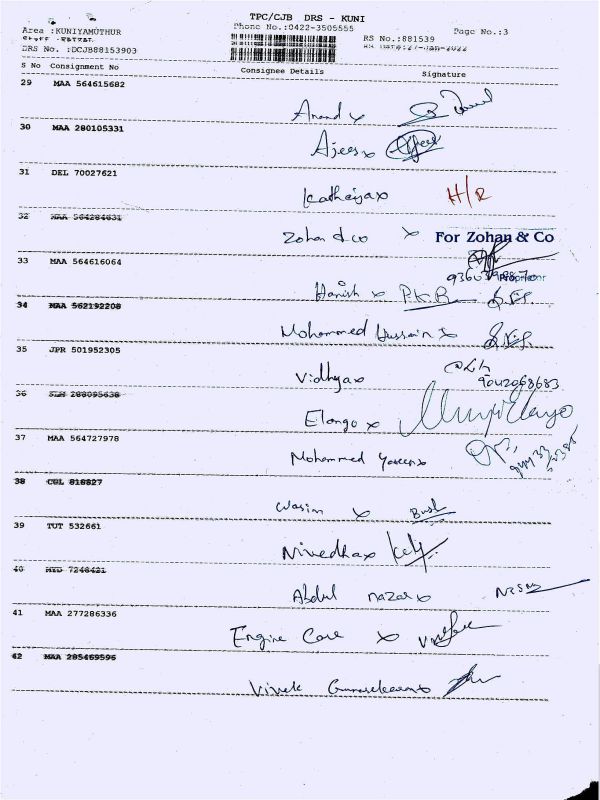 TPC/CJB DRS - KUNI
Area :KUNIYAMUTHUR Phone No.:0422-3505555 RS No.:881539 Page No.:3
DRS No. :DCJB88153903
S No Consignment No Consignee Details Signature
29 MAA 564615682
Anand x
30 MAA 280105331
Ajees x
31 DEL 70027621
Katheija x H/R
32 MAA 564284631
Zohan & co x For Zohan & Co
33 MAA 564616064
Harish x P.K.R
34 MAA 562192208
Mohammed Hussain x
35 JPR 501952305
Vidhya x
36 SLM 288095638
Elango x
37 MAA 564727978
Mohammed Yaseen x
38 CGL 818827
Wasim x
39 TUT 532661
Nivedha x
40 HYD 7248421
Abdul nazar x
41 MAA 277286336
Engine Care x
42 MAA 285469596
Vivek Gunasekaran x